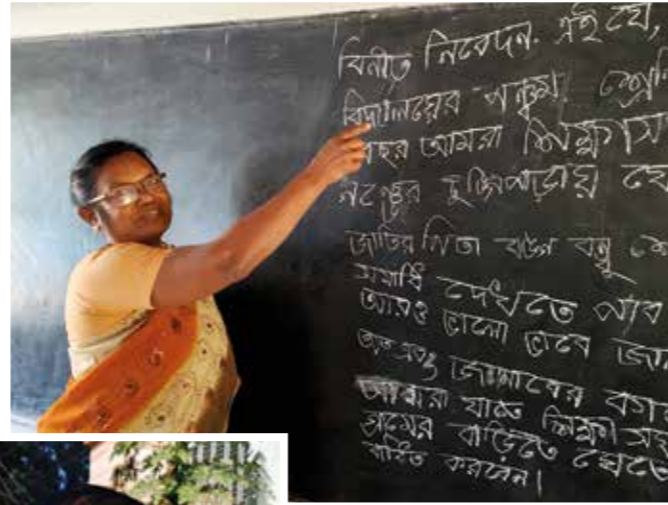 বিনীত নিবেদন. এই যে,
বিদ্যালয়ের পঞ্চম.
বছর আমরা শিক্ষাস
টুঙ্গিপাড়ায়
জাতির পিতা বঙ্গ বন্ধু শে
সমাধি দেখতে পাব
আরও ভালো ভাবে জান
অতএব,
আমরা যাতে শিক্ষা স
গ্রামের বাড়িতে যেতে
করবেন।